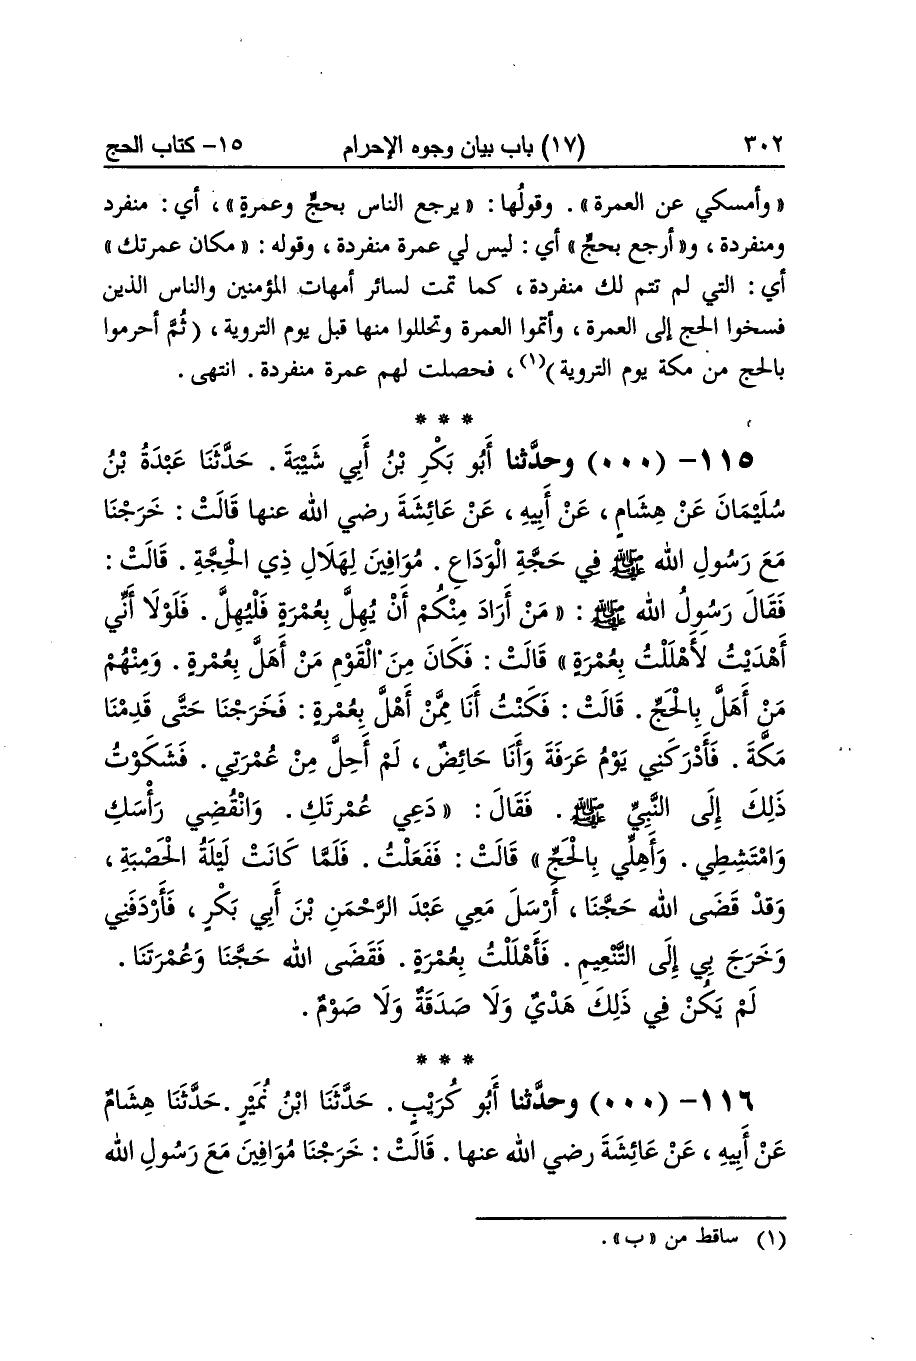 ٣٠٢ (١٧) باب بيان وجوه الإحرام ١٥- كتاب الحج
«وأمسكي عن العمرة». وقولُها: «يرجع الناس بحجٍّ وعمرةٍ»، أي: منفرد
ومنفردة، و«أرجع بحجٍّ» أي: ليس لي عمرة منفردة، وقوله: «مكان عمرتك»
أي: التي لم تتم لك منفردة، كما تمت لسائر أمهات المؤمنين والناس الذين
فسخوا الحج إلى العمرة، وأتموا العمرة وتحللوا منها قبل يوم التروية، (ثُمَّ أحرموا
بالحج من مكة يوم التروية)(١)، فحصلت لهم عمرة منفردة. انتهى.
* * *
١١٥- (٠٠٠) وحدَّثنا أَبُو بَكْرِ بْنُ أَبِي شَيْبَةَ. حَدَّثَنَا عَبْدَةُ بْنُ
سُلَيْمَانَ عَنْ هِشَامٍ، عَنْ أَبِيهِ، عَنْ عَائِشَةَ رضي الله عنها قَالَتْ: خَرَجْنَا
مَعَ رَسُولِ الله ﷺ فِي حَجَّةِ الْوَدَاعِ. مُوَافِينَ لِهِلَالِ ذِي الْحِجَّةِ. قَالَتْ:
فَقَالَ رَسُولُ الله ﷺ: «مَنْ أَرَادَ مِنْكُمْ أَنْ يُهِلَّ بِعُمْرَةٍ فَلْيُهِلَّ. فَلَوْلَا أَنِّي
أَهْدَيْتُ لَأَهْلَلْتُ بِعُمْرَةٍ» قَالَتْ: فَكَانَ مِنَ الْقَوْمِ مَنْ أَهَلَّ بِعُمْرةٍ. وَمِنْهُمْ
مَنْ أَهَلَّ بِالْحَجِّ. قَالَتْ: فَكُنْتُ أَنَا مِمَّنْ أَهْلَّ بِعُمْرةٍ: فَخَرَجْنَا حَتَّى قَدِمْنَا
مَكَّةَ. فَأَدْرَكَنِي يَوْمُ عَرَفَةَ وَأَنَا حَائِضٌ، لَمْ أَحِلَّ مِنْ عُمْرَتِي. فَشَكَوْتُ
ذَلِكَ إِلَى النَّبِيِّ ﷺ. فَقَالَ: «دَعِي عُمْرتَكِ. وَانْقُضِي رَأْسَكِ
وَامْتَشِطِي. وَأَهِلِّي بِالْحَجِّ» قَالَتْ: فَفَعَلْتُ. فَلَمَّا كَانَتْ لَيْلَةُ الْحَصْبَةِ،
وَقدْ قَضَى الله حَجَّنَا، أَرْسَلَ مَعِي عَبْدَ الرَّحْمَنِ بْنَ أَبِي بَكْرٍ، فَأَرْدَفَنِي
وَخَرَجَ بِي إِلَى التَّنْعِيمِ. فَأَهْلَلْتُ بِعُمْرَةٍ. فَقَضَى الله حَجَّنَا وَعُمْرَتَنَا.
لَمْ يَكُنْ فِي ذَلِكَ هَدْيٌ وَلَا صَدَقَةٌ وَلَا صَوْمٌ.
* * *
١١٦- (٠٠٠) وحدَّثنا أَبُو كُرَيْبٍ. حَدَّثَنَا ابْنُ نُمَيْرٍ. حَدَّثَنَا هِشَامٌ
عَنْ أَبِيهِ، عَنْ عَائِشَةَ رضي الله عنها. قَالَتْ: خَرَجْنَا مُوَافِينَ مَعَ رَسُولِ الله
(١) ساقط من «ب».